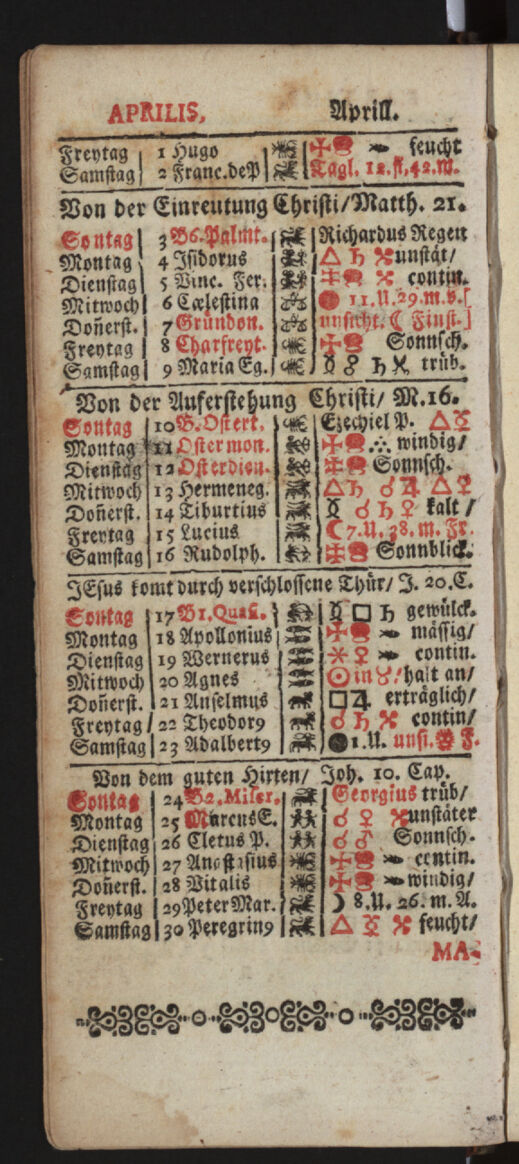 APRILIS, Aprill.
Freytag 1 Hugo feucht
Samstag 2 Franc.deP Tagl. 12.st.42.m.
Von der Einreutung Christi/Matth. 21.
Sontag 3 B6.Palmt. Richardus Regen
Montag 4 Jsidorus △ ♄ unstät/
Dienstag 5 Vinc. Fer. contin.
Mitwoch 6 Cælestina 11.U.29.m.v.[
Doñerst. 7 Gründon. unsicht. ☾ Finst.]
Freytag 8 Charfreyt. Sonnsch.
Samstag 9 Maria Eg. ☿ ♀ ♄ trüb.
Von der Auferstehung Christi/ M.16.
Sontag 10 B.Ostert. Ezechiel P. △
Montag 11 Ostermon. windig/
Dienstag 12 Osterdien. Sonnsch.
Mitwoch 13 Hermeneg. △♄ ☌♃ △♀
Doñerst. 14 Tiburtius ☿ ☌ ♄ ♀ kalt /
Freytag 15 Lucius ☾ 7.U.38.m. Fr.
Samstag 16 Rudolph. Sonnblick.
JEsus komt durch verschlossene Thür/ J. 20.C.
Sontag 17 B1.Quas. ☿ □ ♄ gewülck.
Montag 18 Apollonius mässig/
Dienstag 19 Wernerus ⚹ ♀ contin.
Mitwoch 20 Agnes ☉ in ♉/ halt an/
Doñerst. 21 Anselmus □♃ erträglich/
Freytag 22 Theodor9 ☌ ♄ contin/
Samstag 23 Adalbert9 ●1.U. unsi. F.
Von dem guten Hirten/ Joh. 10. Cap.
Sontag 24 B2.Miser. Georgius trüb/
Montag 25 MarcusE. ☌ ♀ unstäter
Dienstag 26 Cletus P. ☌ ♂ Sonnsch.
Mitwoch 27 Anastasius contin.
Doñerst. 28 Vitalis windig/
Freytag 29 Peter Mar. ☽ 8.U. 26. m. A.
Samstag 30 Peregrin9 △ feucht/
MA-